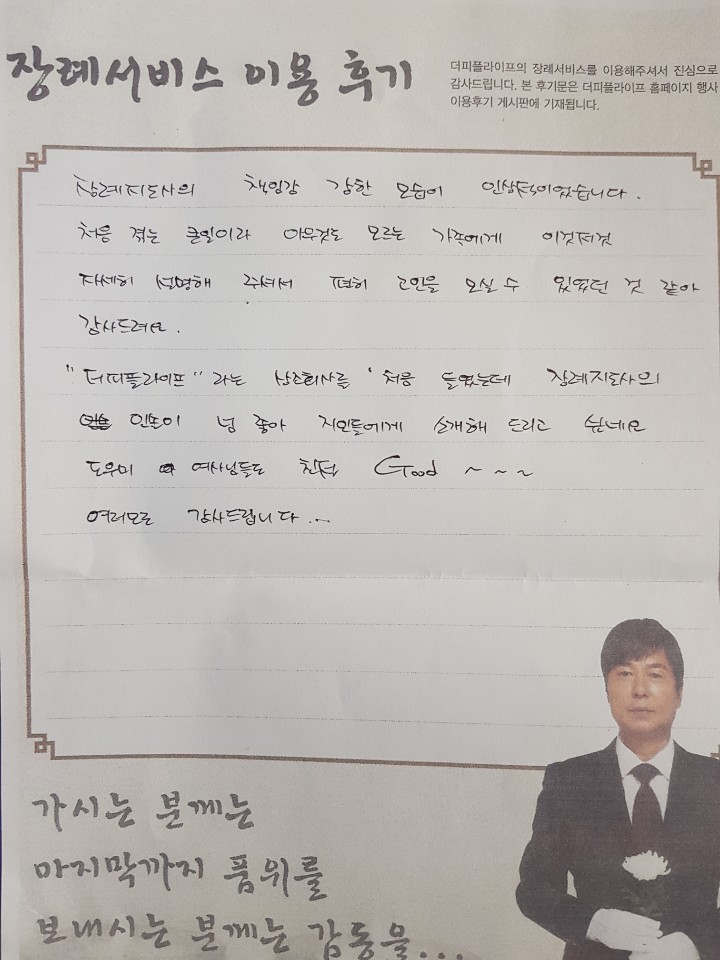 장례서비스 이용 후기
더피플라이프의 장례서비스를 이용해주셔서 진심으로
감사드립니다. 본 후기문은 더피플라이프 홈페이지 행사
이용후기 게시판에 기재됩니다.
장례지도사의 책임감 강한 모습이 인상적이었습니다.
처음 겪는 큰일이라 아무것도 모르는 가족에게 이것저것
자세히 설명해 주셔서 편히 고인을 모실 수 있었던 것 같아
감사드려요.
"더피플라이프" 라는 상조회사를 처음 들었는데 장례지도사의
인솔이 넘 좋아 지인들에게 소개해 드리고 싶네요
도우미 여사님들도 친절 Good ~ ~ ~
여러모로 감사드립니다...
가시는 분께는
마지막까지 품위를
보내시는 분께는 감동을...